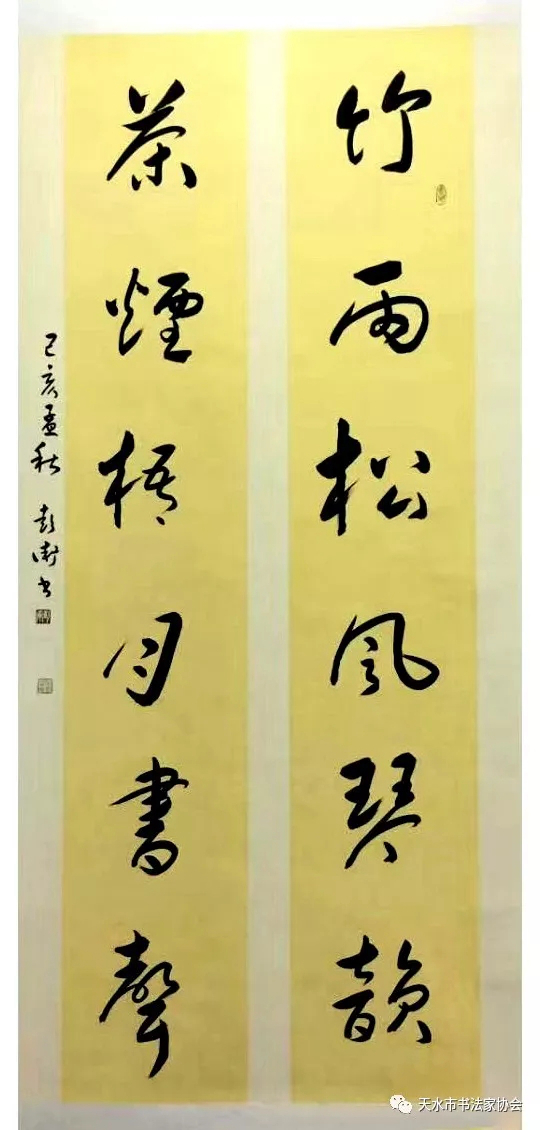 竹雨松風琴韻
茶煙梧月書聲
己亥孟秋 彭衛书
天水市书法家协会